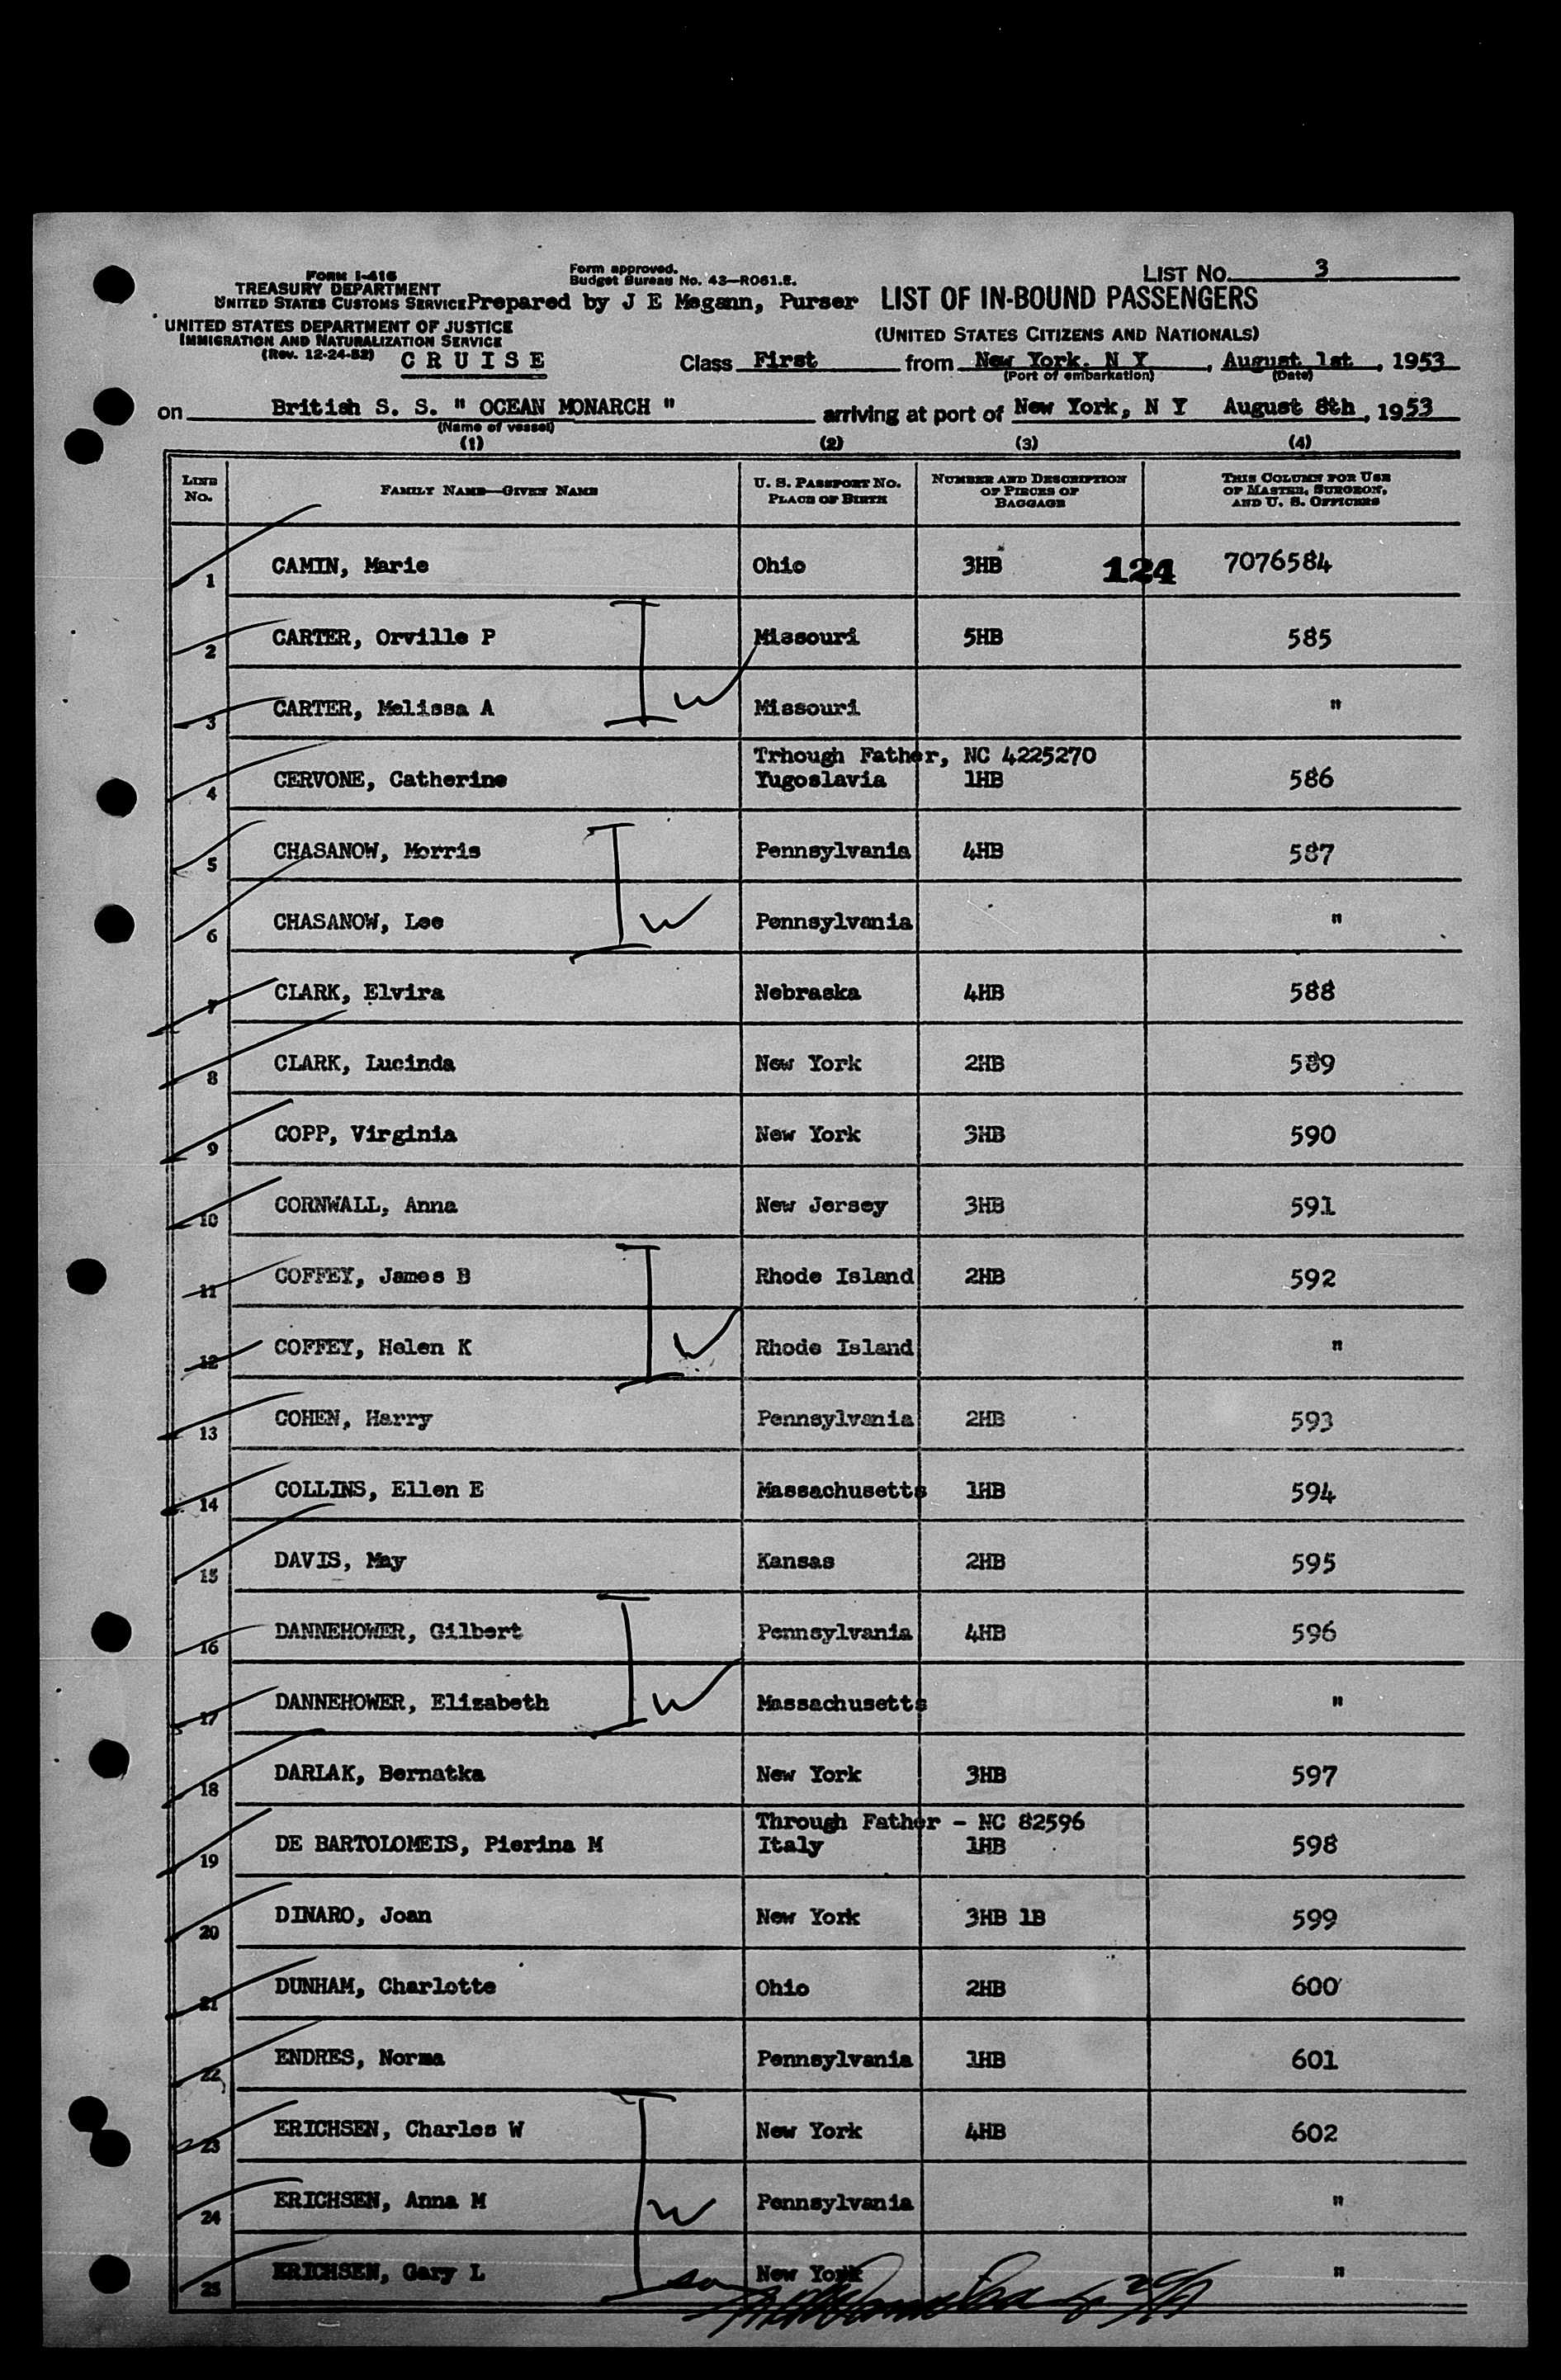 FORM I-416
TREASURY DEPARTMENT
UNITED STATES CUSTOMS SERVICE
UNITED STATES DEPARTMENT OF JUSTICE
IMMIGRATION AND NATURALIZATION SERVICE
(Rev. 12-24-52)
C R U I S E
Form approved.
Budget Bureau No. 43—R061.2.
Prepared by J E Megann, Purser
LIST NO. 3
LIST OF IN-BOUND PASSENGERS
(UNITED STATES CITIZENS AND NATIONALS)
Class First from New York. N Y, August 1st, 1953
(Port of embarkation) (Date)
on British S. S. " OCEAN MONARCH " arriving at port of New York, N Y August 8th, 1953
(Name of vessel)
(1) (2) (3) (4)
LINE NO. FAMILY NAME—GIVEN NAME U. S. PASSPORT NO. PLACE OF BIRTH NUMBER AND DESCRIPTION OF PIECES OF BAGGAGE THIS COLUMN FOR USE OF MASTER, SURGEON, AND U. S. OFFICERS
1 CAMIN, Marie Ohio 3HB 124 7076584
2 CARTER, Orville P Missouri 5HB 585
3 CARTER, Melissa A W Missouri "
Trhough Father, NC 4225270
4 CERVONE, Catherine Yugoslavia 1HB 586
5 CHASANOW, Morris Pennsylvania 4HB 587
6 CHASANOW, Lee W Pennsylvania "
7 CLARK, Elvira Nebraska 4HB 588
8 CLARK, Lucinda New York 2HB 589
9 COPP, Virginia New York 3HB 590
10 CORNWALL, Anna New Jersey 3HB 591
11 COFFEY, James B Rhode Island 2HB 592
12 COFFEY, Helen K W Rhode Island "
13 COHEN, Harry Pennsylvania 2HB 593
14 COLLINS, Ellen E Massachusetts 1HB 594
15 DAVIS, May Kansas 2HB 595
16 DANNEHOWER, Gilbert Pennsylvania 4HB 596
17 DANNEHOWER, Elizabeth W Massachusetts "
18 DARLAK, Bernatka New York 3HB 597
Through Father - NC 82596
19 DE BARTOLOMEIS, Pierina M Italy 1HB 598
20 DINARO, Joan New York 3HB 1B 599
21 DUNHAM, Charlotte Ohio 2HB 600
22 ENDRES, Norma Pennsylvania 1HB 601
23 ERICHSEN, Charles W New York 4HB 602
24 ERICHSEN, Anna M W Pennsylvania "
25 ERICHSEN, Gary L son New York "